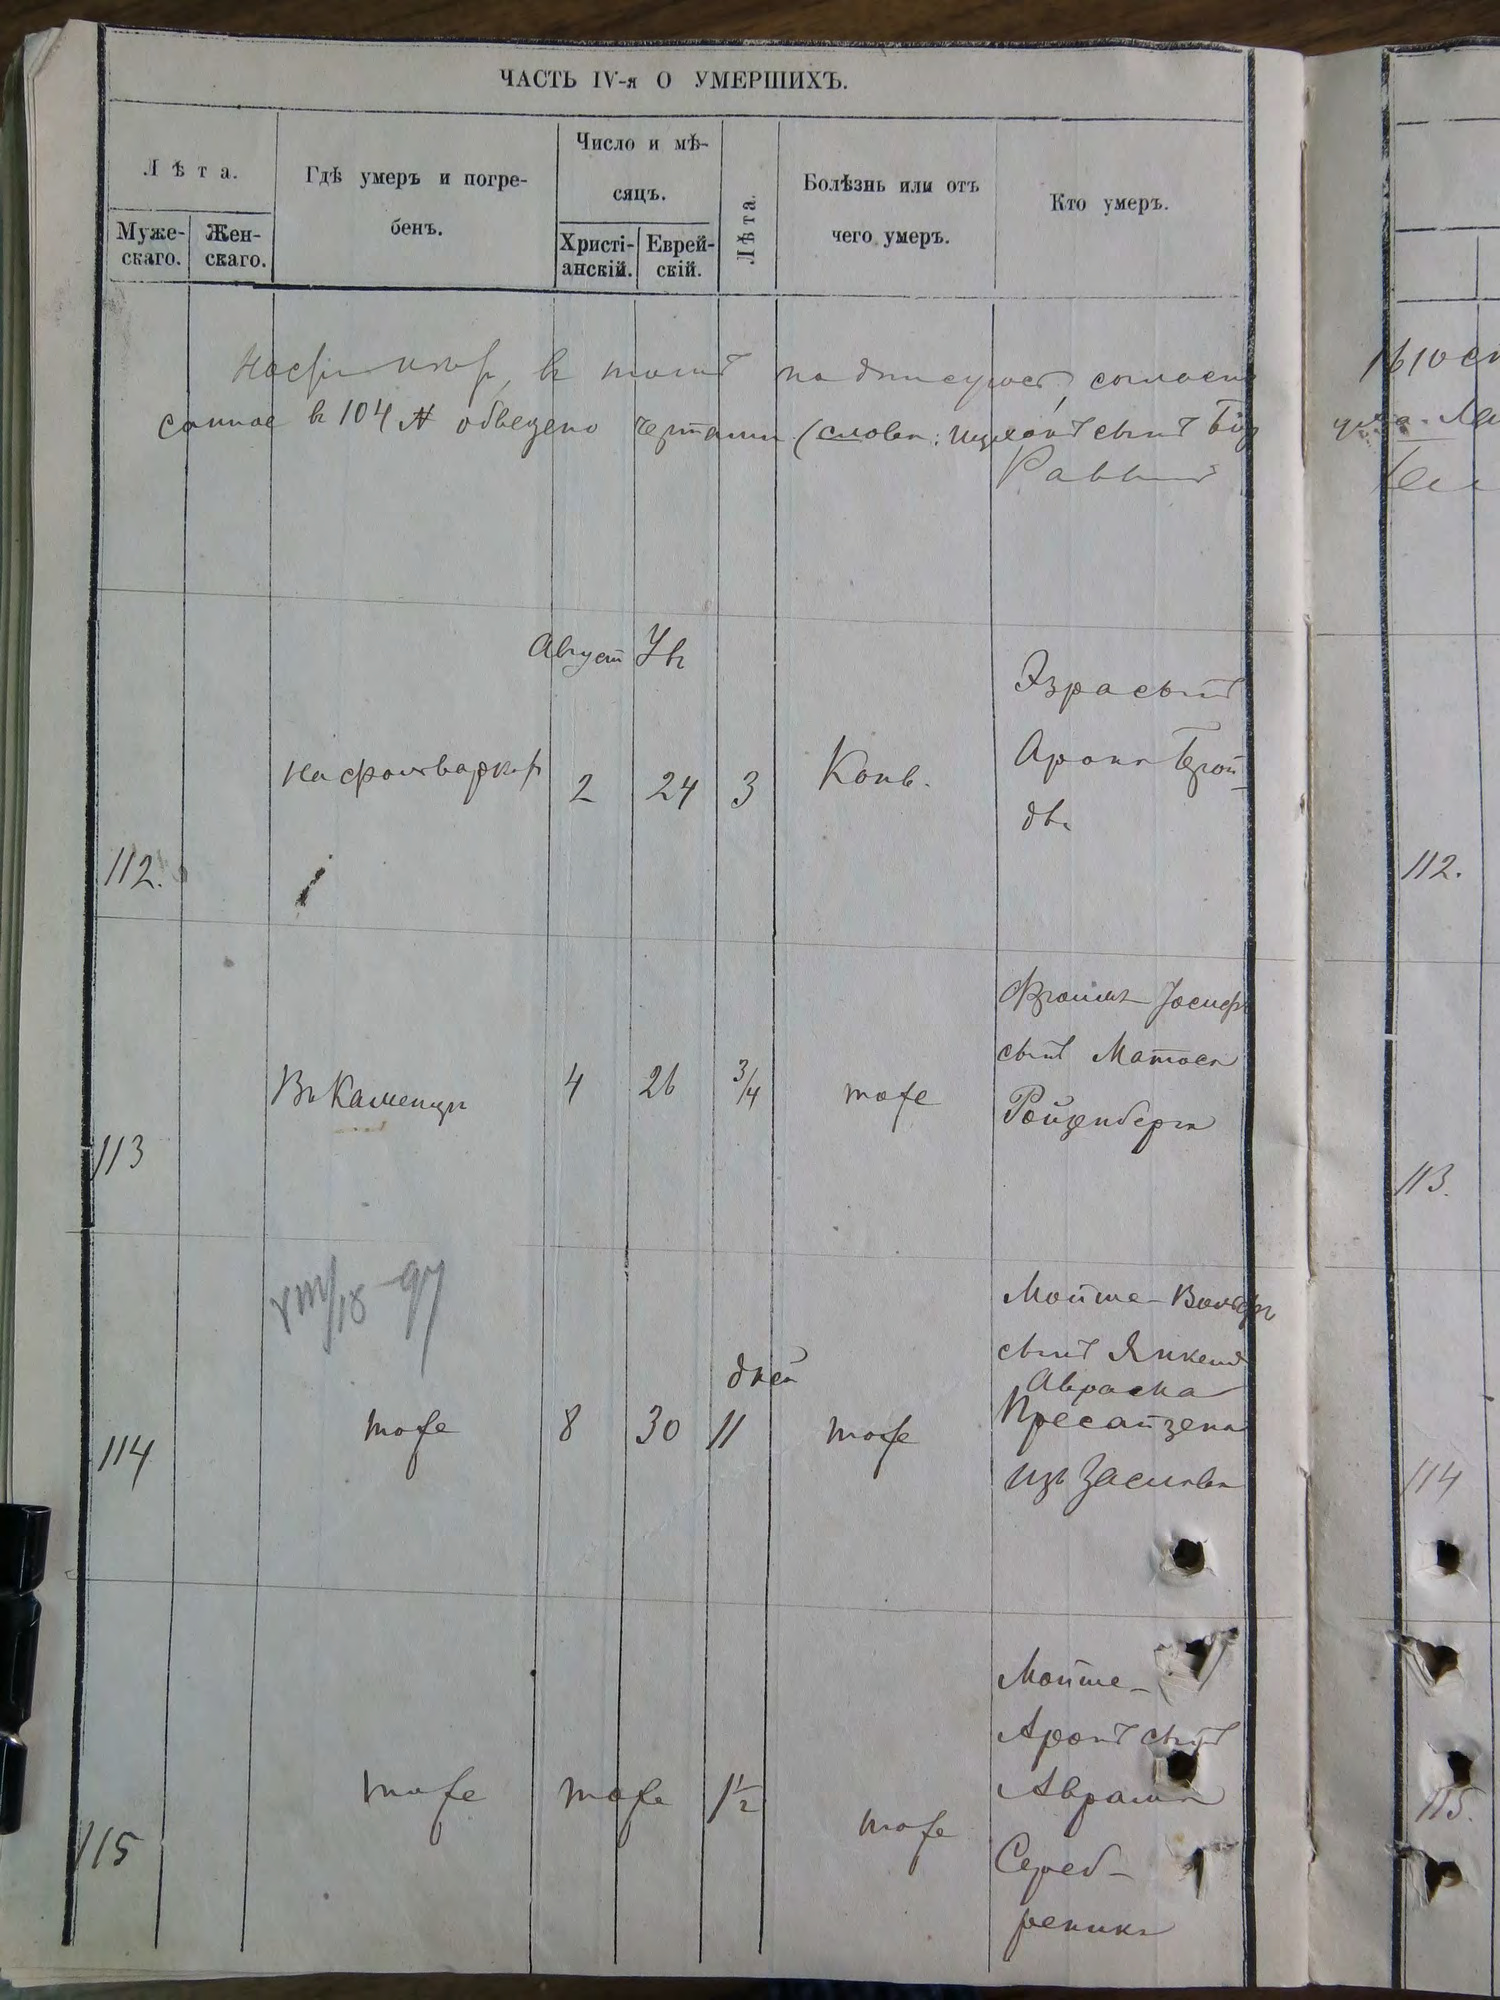 ЧАСТЬ IV-я О УМЕРШИХЪ.
Лѣта.
Муже-
скаго.
Жен-
скаго.
Гдѣ умеръ и погре-
бенъ.
Число и мѣ-
сяцъ.
Христі-
анскій.
Еврей-
скій.
Лѣта.
Болѣзнь или отъ
чего умеръ.
Кто умеръ.
въ томъ
въ 104 № обведено чертами (слова:
Раввинъ
112.
На фольваркѣ
Август
2
Ув
24
3
Конв.
Эзра сынъ
Арона Брон-
113
Въ Каменцѣ
4
26
3/4
тоже
Фроимъ-Іосифъ
сынъ Матоса
Ройзенберга
VIII/18-97
114
тоже
8
30
дней
11
тоже
Мойше-Вольфъ
сынъ Янкеля
Авраама
Пресайзена
изъ Заслава
115
тоже
тоже
1 1/2
тоже
Мойше-
Аронъ сынъ
Аврама
Сереб-
реника
112.
113.
114
115.